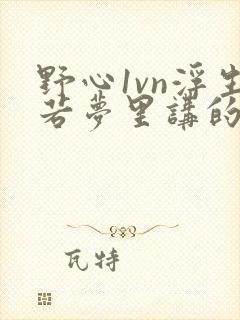 野心1vn浮生
若夢里講的
瓦特